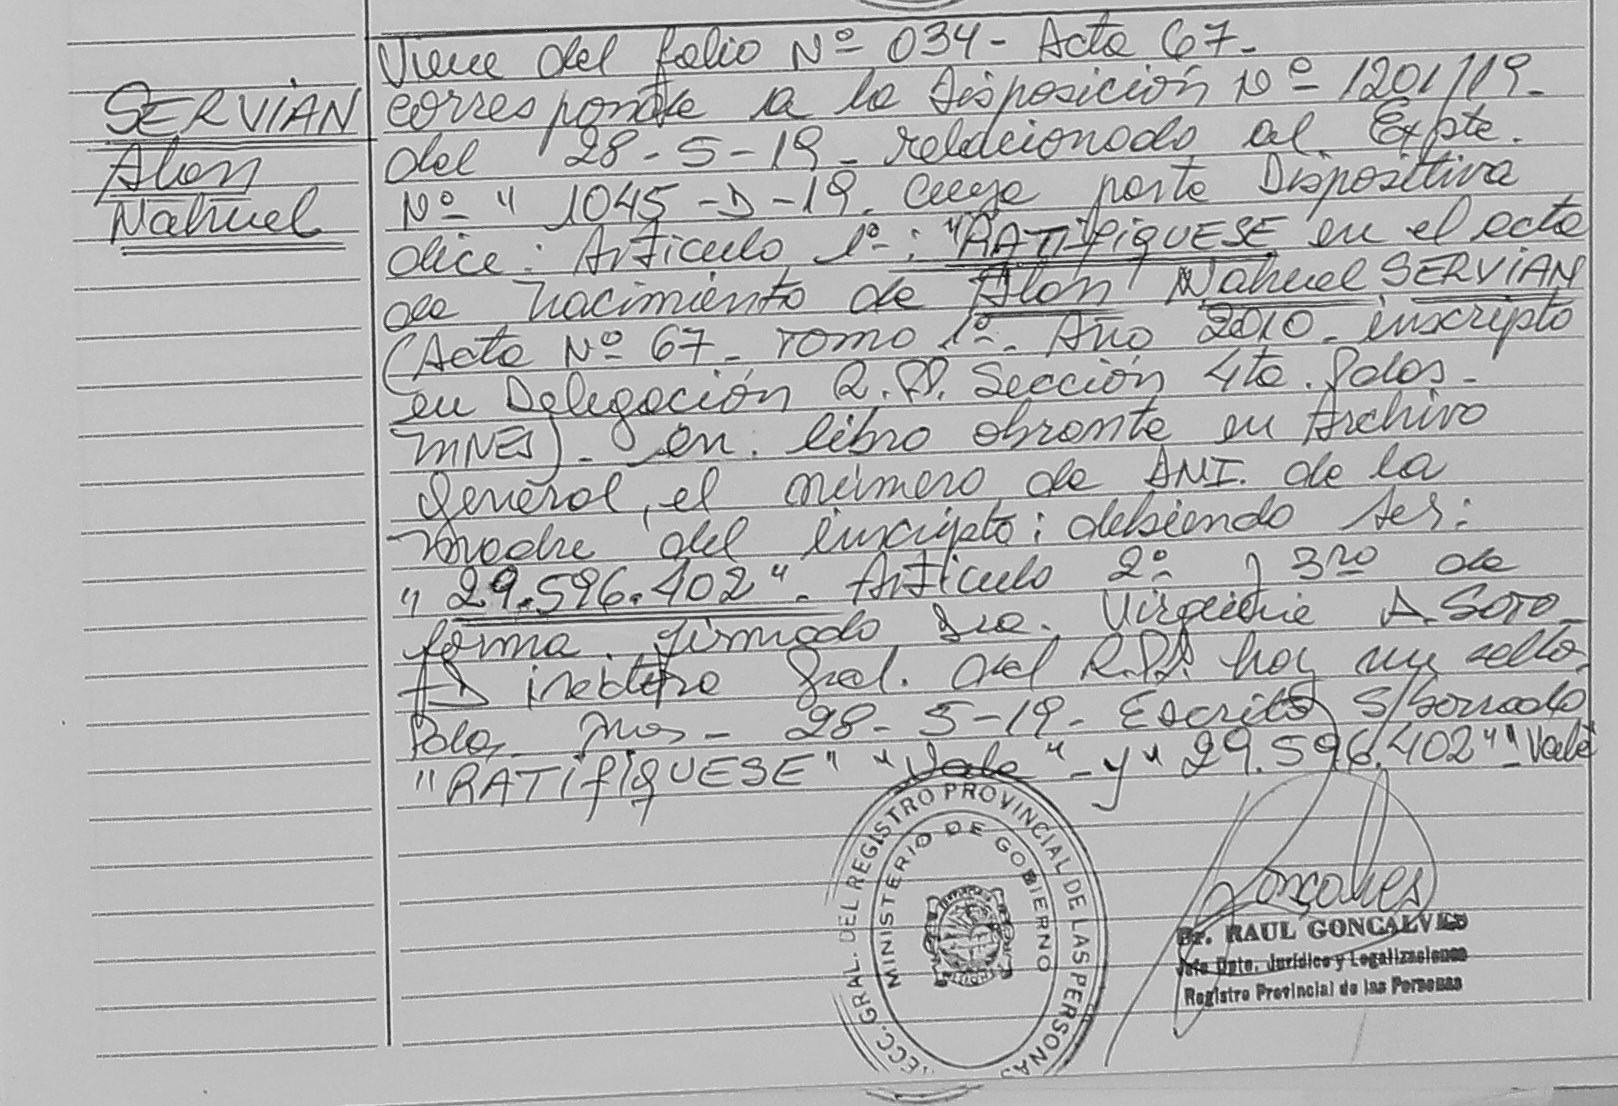 SERVIAN
Alan
Nahuel
Viene del folio Nº 034 - Acta 67 -
corresponde a la Disposición Nº 1201/19 -
del 28-5-19 - relacionado al Expte.
Nº " 1045 - D - 19. Cuya parte Dispositiva
dice: Artículo 1º: "RATIFIQUESE en el acta
de nacimiento de Alan Nahuel SERVIAN
(Acta Nº 67 - Tomo 1º - Año 2010 - inscripto
en Delegación R.P.P. Sección 4ta. Pdas -
MNES) - en libro obrante en Archivo
General, el número de DNI. de la
madre del inscripto: debiendo ser:
" 29.596.402 " - Artículo 2º y 3ro de
forma. firmado Dra. A. SOTO -
Gral. del R.P.P. hay un sello.
Pdas - Mnes - 28-5-19 - Escrito S/borrado
"RATIFIQUESE" "Vale" - y "29.596.402" "Vale"
DIRECC. GRAL. DEL REGISTRO PROVINCIAL DE LAS PERSONAS
MINISTERIO DE GOBIERNO
Goncalves
Dr. RAUL GONCALVES
Jefe Dpto. Jurídico y Legalizaciones
Registro Provincial de las Personas